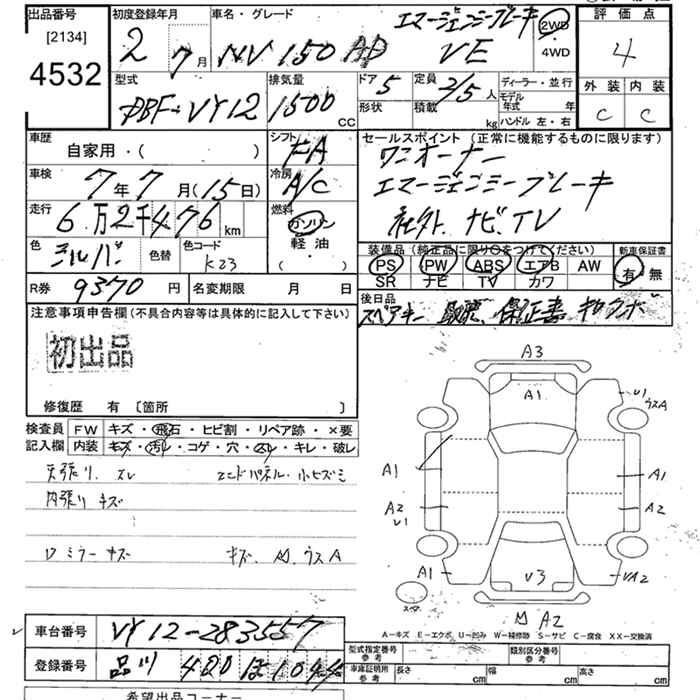 出品番号 初度登録年月 車名・グレード エマージェンシーブレーキ 2WD 評価点
[2134] 2 7月 NV 150 AD VE 4WD 4
4532
型式 排気量 ドア 5 定員 2/5人 ディーラー・並行 外装 内装
DBF-VY12 1500 CC 形状 積載 kg モデル年式 年 C C
ハンドル 左・右
車歴 シフト セールスポイント (正常に機能するものに限ります)
自家用・( ) FA ワンオーナー
車検 冷房 エマージェンシーブレーキ
7年7月(15日) A/C 社外ナビ.TV
走行 燃料
6万2千476km ガソリン
色 シルバー 色替 色コード K23 軽油 ・( )
装備品 (純正品に限り○をつけてください) 新車保証書
PS PW ABS エアB AW 有・無
SR ナビ TV カワ
R券 9370円 名変期限 月 日
後日品
スペアキー 取説、保証書
注意事項申告欄(不具合内容等は具体的に記入して下さい)
初出品
修復歴 有 〔箇所 〕
検査員記入欄 FW キズ・飛石・ヒビ割・リペア跡・×要
内装 キズ・汚れ・コゲ・穴・スレ・キレ・破レ
天張り.スレ エンドパネル・小ヒズミ
内張りキズ
ワミラーキズ キズ、凹、ウスA
A3
A1
U1 ウスA
A1 A1
A2 U1 A2
A1 V3 UA2
スペア
凹 A2
A-キズ E-エクボ U-凹み W-補修跡 S-サビ C-腐食 XX-交換済
車台番号 VY12-283557
登録番号 品川 400 ほ 1044
型式指定番号 参考 類別区分番号 参考
車庫証明用 参考 長さ cm 幅 cm 高さ cm
希望出品コーナー